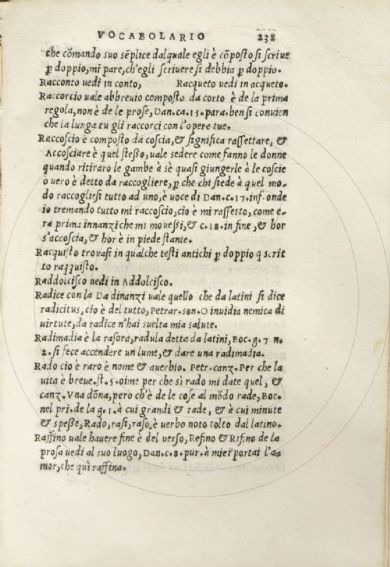 VOCABOLARIO 238
che cõmando suo sẽplice dalquale egli è cõposto si scriue
p doppio, mi pare, ch'egli scriuere si debbia p doppio.
Racconto uedi in conto, Racqueto uedi in acqueto.
Raccorcio uale abbreuio composto da corto è de la prima
regola, non è de le prose, Dan. ca. 15. para. ben si conuien
che la lunga tu gli raccorci con l'opere tue.
Raccoscio è composto da coscia, & significa rassettare, &
Accosciare è quel stesso, uale sedere come fanno le donne
quando ritiraro le gambe à sè quasi giungerle à le coscie
o uero è detto da raccogliere, p che chi siede à quel mo-
do raccogliesi tutto ad uno, è uoce di Dan. c. 17. inf. onde
io tremando tutto mi raccoscio, cio è mi rassetto, come e-
ra prima innanzi che mi mouessi, & c. 18. in fine, & hor
s'accoscia, & hor è in piede stante.
Racquisto trouasi in qualche testi antichi p doppio q scrit
to razzuisto.
Raddolcisco uedi in Addolcisco.
Radice con la Da dinanzi uale quello che da latini si dice
radicitus, cio è del tutto, Petrar. son. O inuidia nemica di
uirtute, da radice n'hai suelta mia salute.
Radimadia è la rasora, radula detta da latini, Boc. g. 7 n.
2. si fece accendere un lume, & dare una radimadia.
Rado cio è raro è nome & auerbio. Petr. canz. Per che la
uita è breue. st. 5. oime per che sì rado mi date quel, &
canz. Vna dõna, pero ch'è de le cose al mõdo rade, Boc.
nel pri. de la g. 1. à cui grandi & rade, & à cui minute
& spesse, Rado, rasi, raso, è uerbo noto tolto dal latino.
Raffino uale hauere fine è del uerso, Refino & Rifino de la
prosa uedi al suo luogo, Dan. c. 8. pur. à miei portai l'a-
mor, che quì raffina.